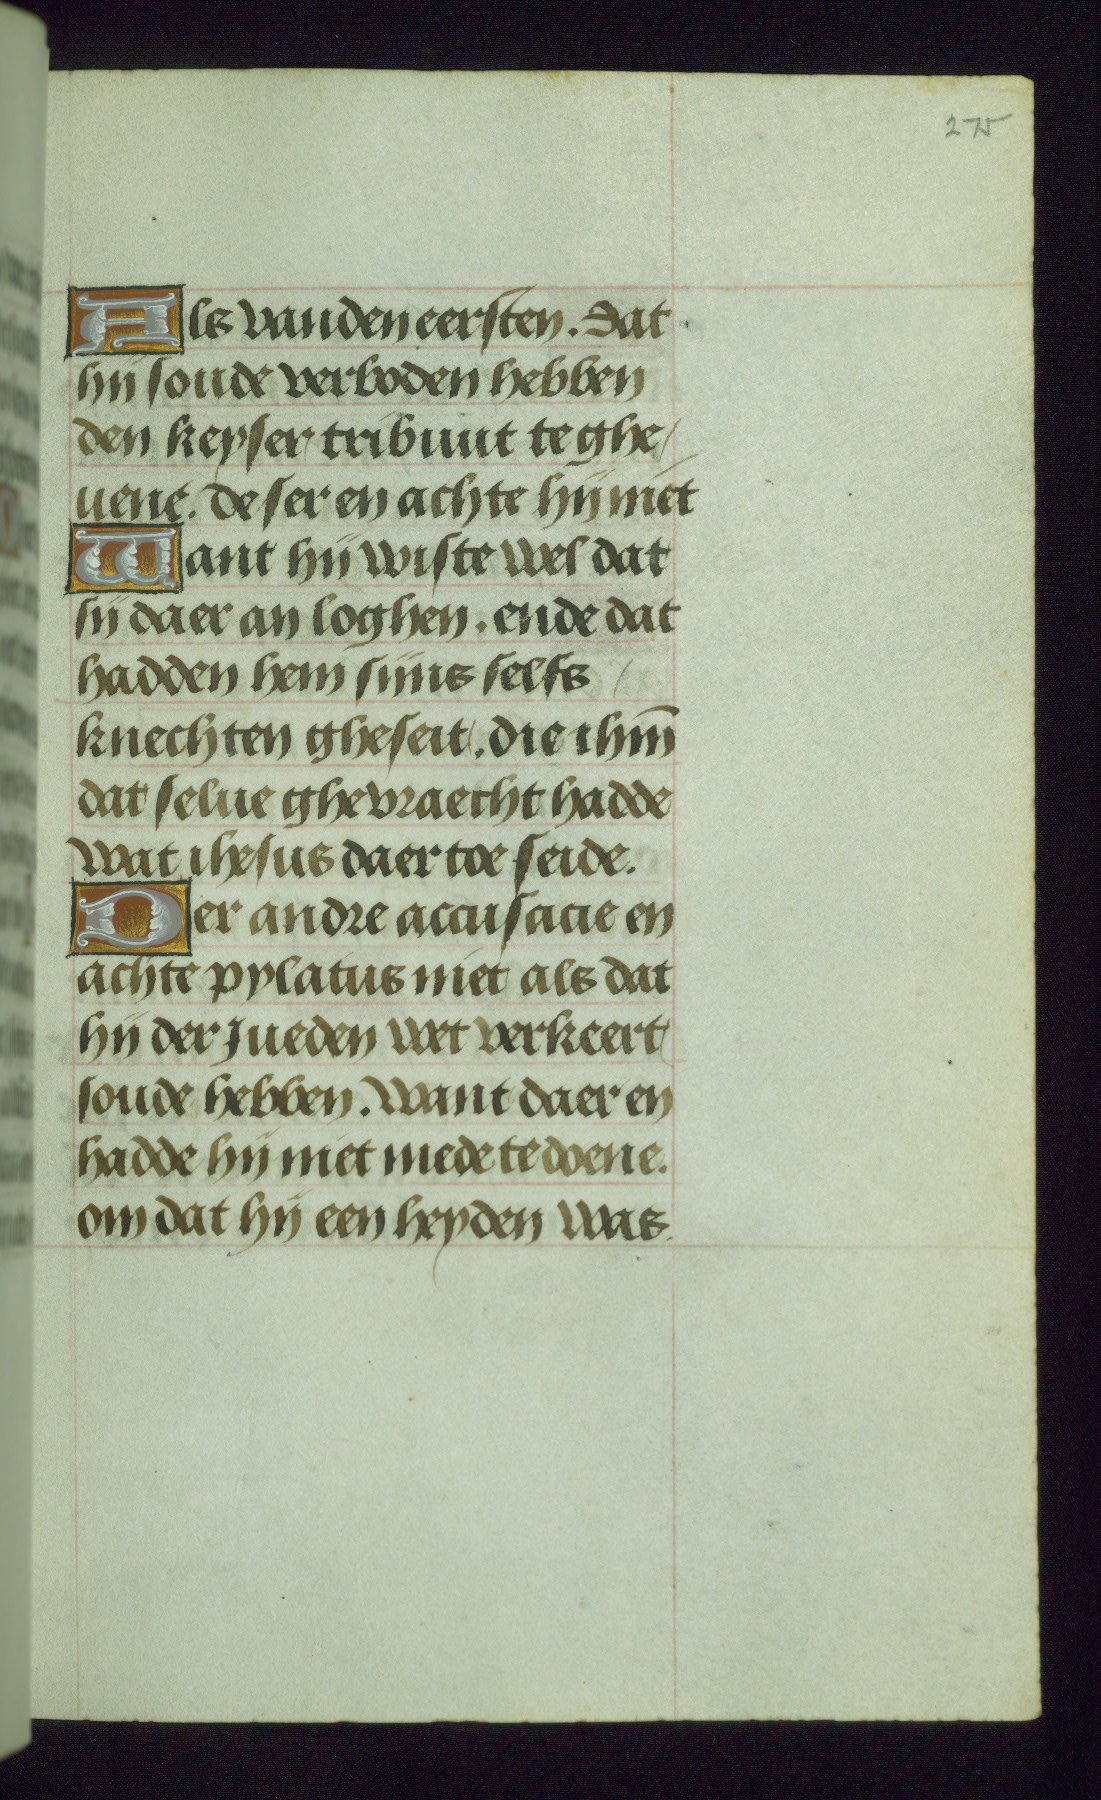 275
Als vanden eersten. Dat
hij soude verboden hebben
den keyser tribuut te ghe/
uene. deser en achte hij niet
Want hij wiste wel dat
sij daer an loghen. ende dat
hadden hem sijns selfs
knechten gheseit. die ihm̅
dat selue ghevraecht hadde
wat ihesus daer toe seide.
Der andre accusacie en
achte pylatus niet als dat
hij der Jueden wet verkeert
soude hebben. Want daer en
hadde hij niet mede te doene.
om dat hij een heyden was.